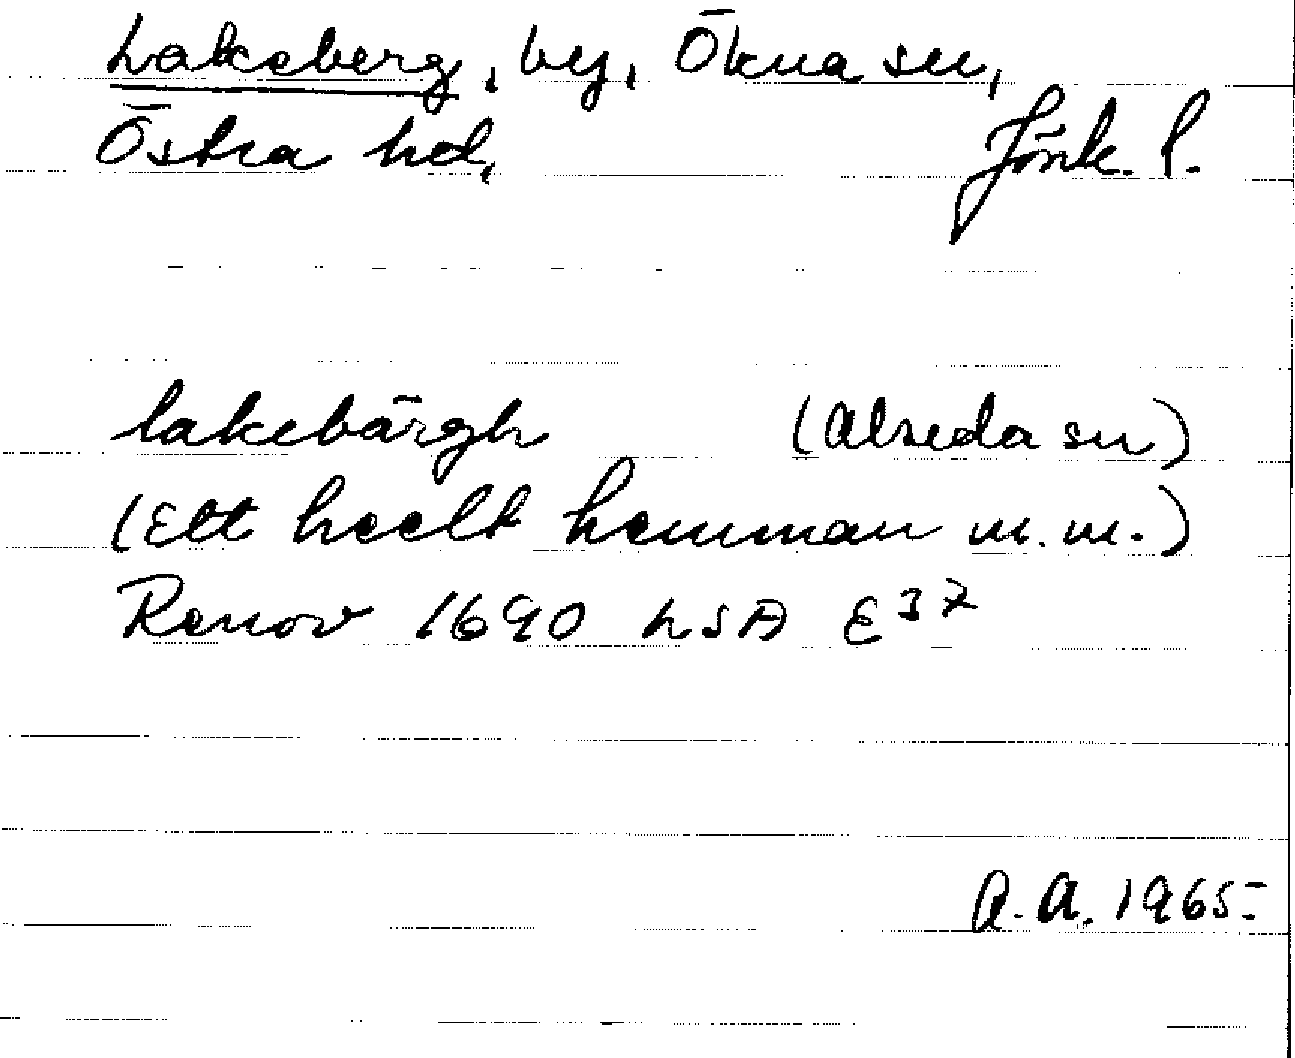 Lakeberg, by, Ökna sn,
Östra hd, Jönk. l.
lakebärgh (Alseda sn)
(Ett heelt hemman m.m.)
Renov 1690 LSA E37
A.A. 1965.